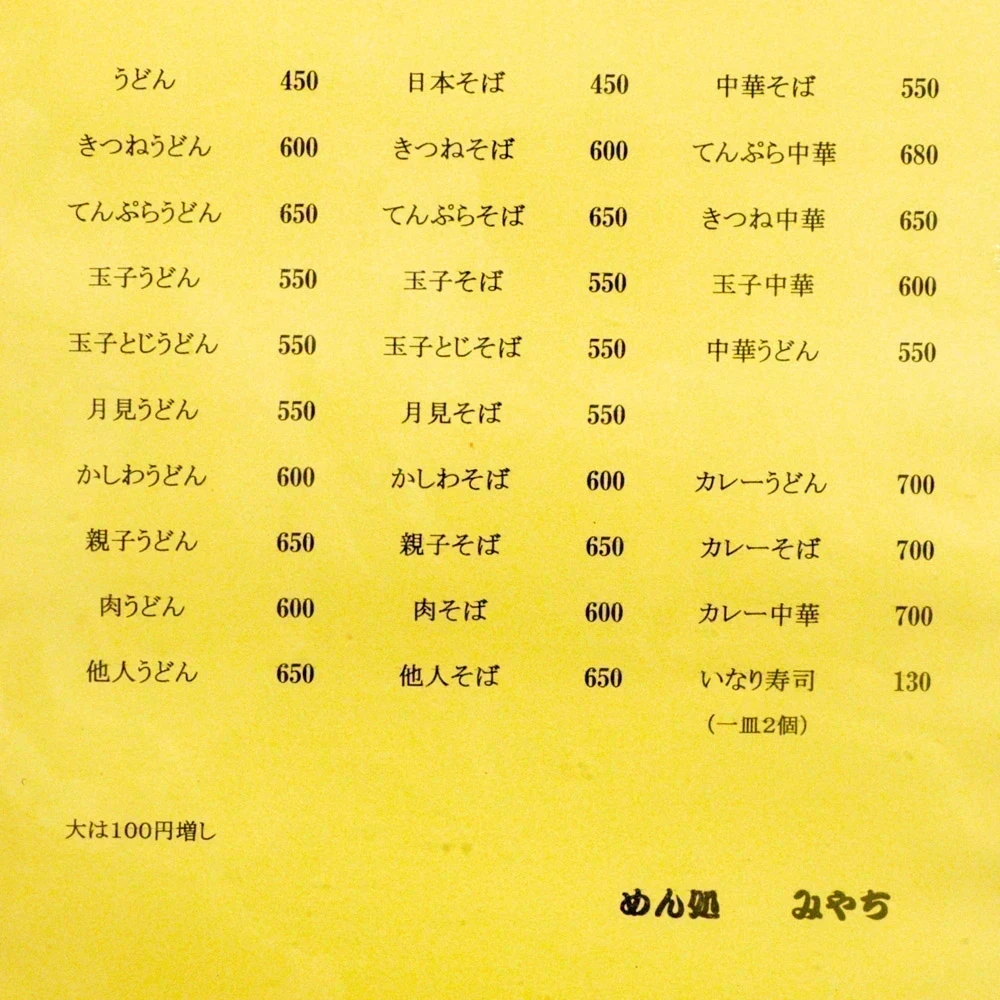 うどん 450 日本そば 450 中華そば 550
きつねうどん 600 きつねそば 600 てんぷら中華 680
てんぷらうどん 650 てんぷらそば 650 きつね中華 650
玉子うどん 550 玉子そば 550 玉子中華 600
玉子とじうどん 550 玉子とじそば 550 中華うどん 550
月見うどん 550 月見そば 550
かしわうどん 600 かしわそば 600 カレーうどん 700
親子うどん 650 親子そば 650 カレーそば 700
肉うどん 600 肉そば 600 カレー中華 700
他人うどん 650 他人そば 650 いなり寿司 130
(一皿2個)
大は100円増し
めん処 みやち